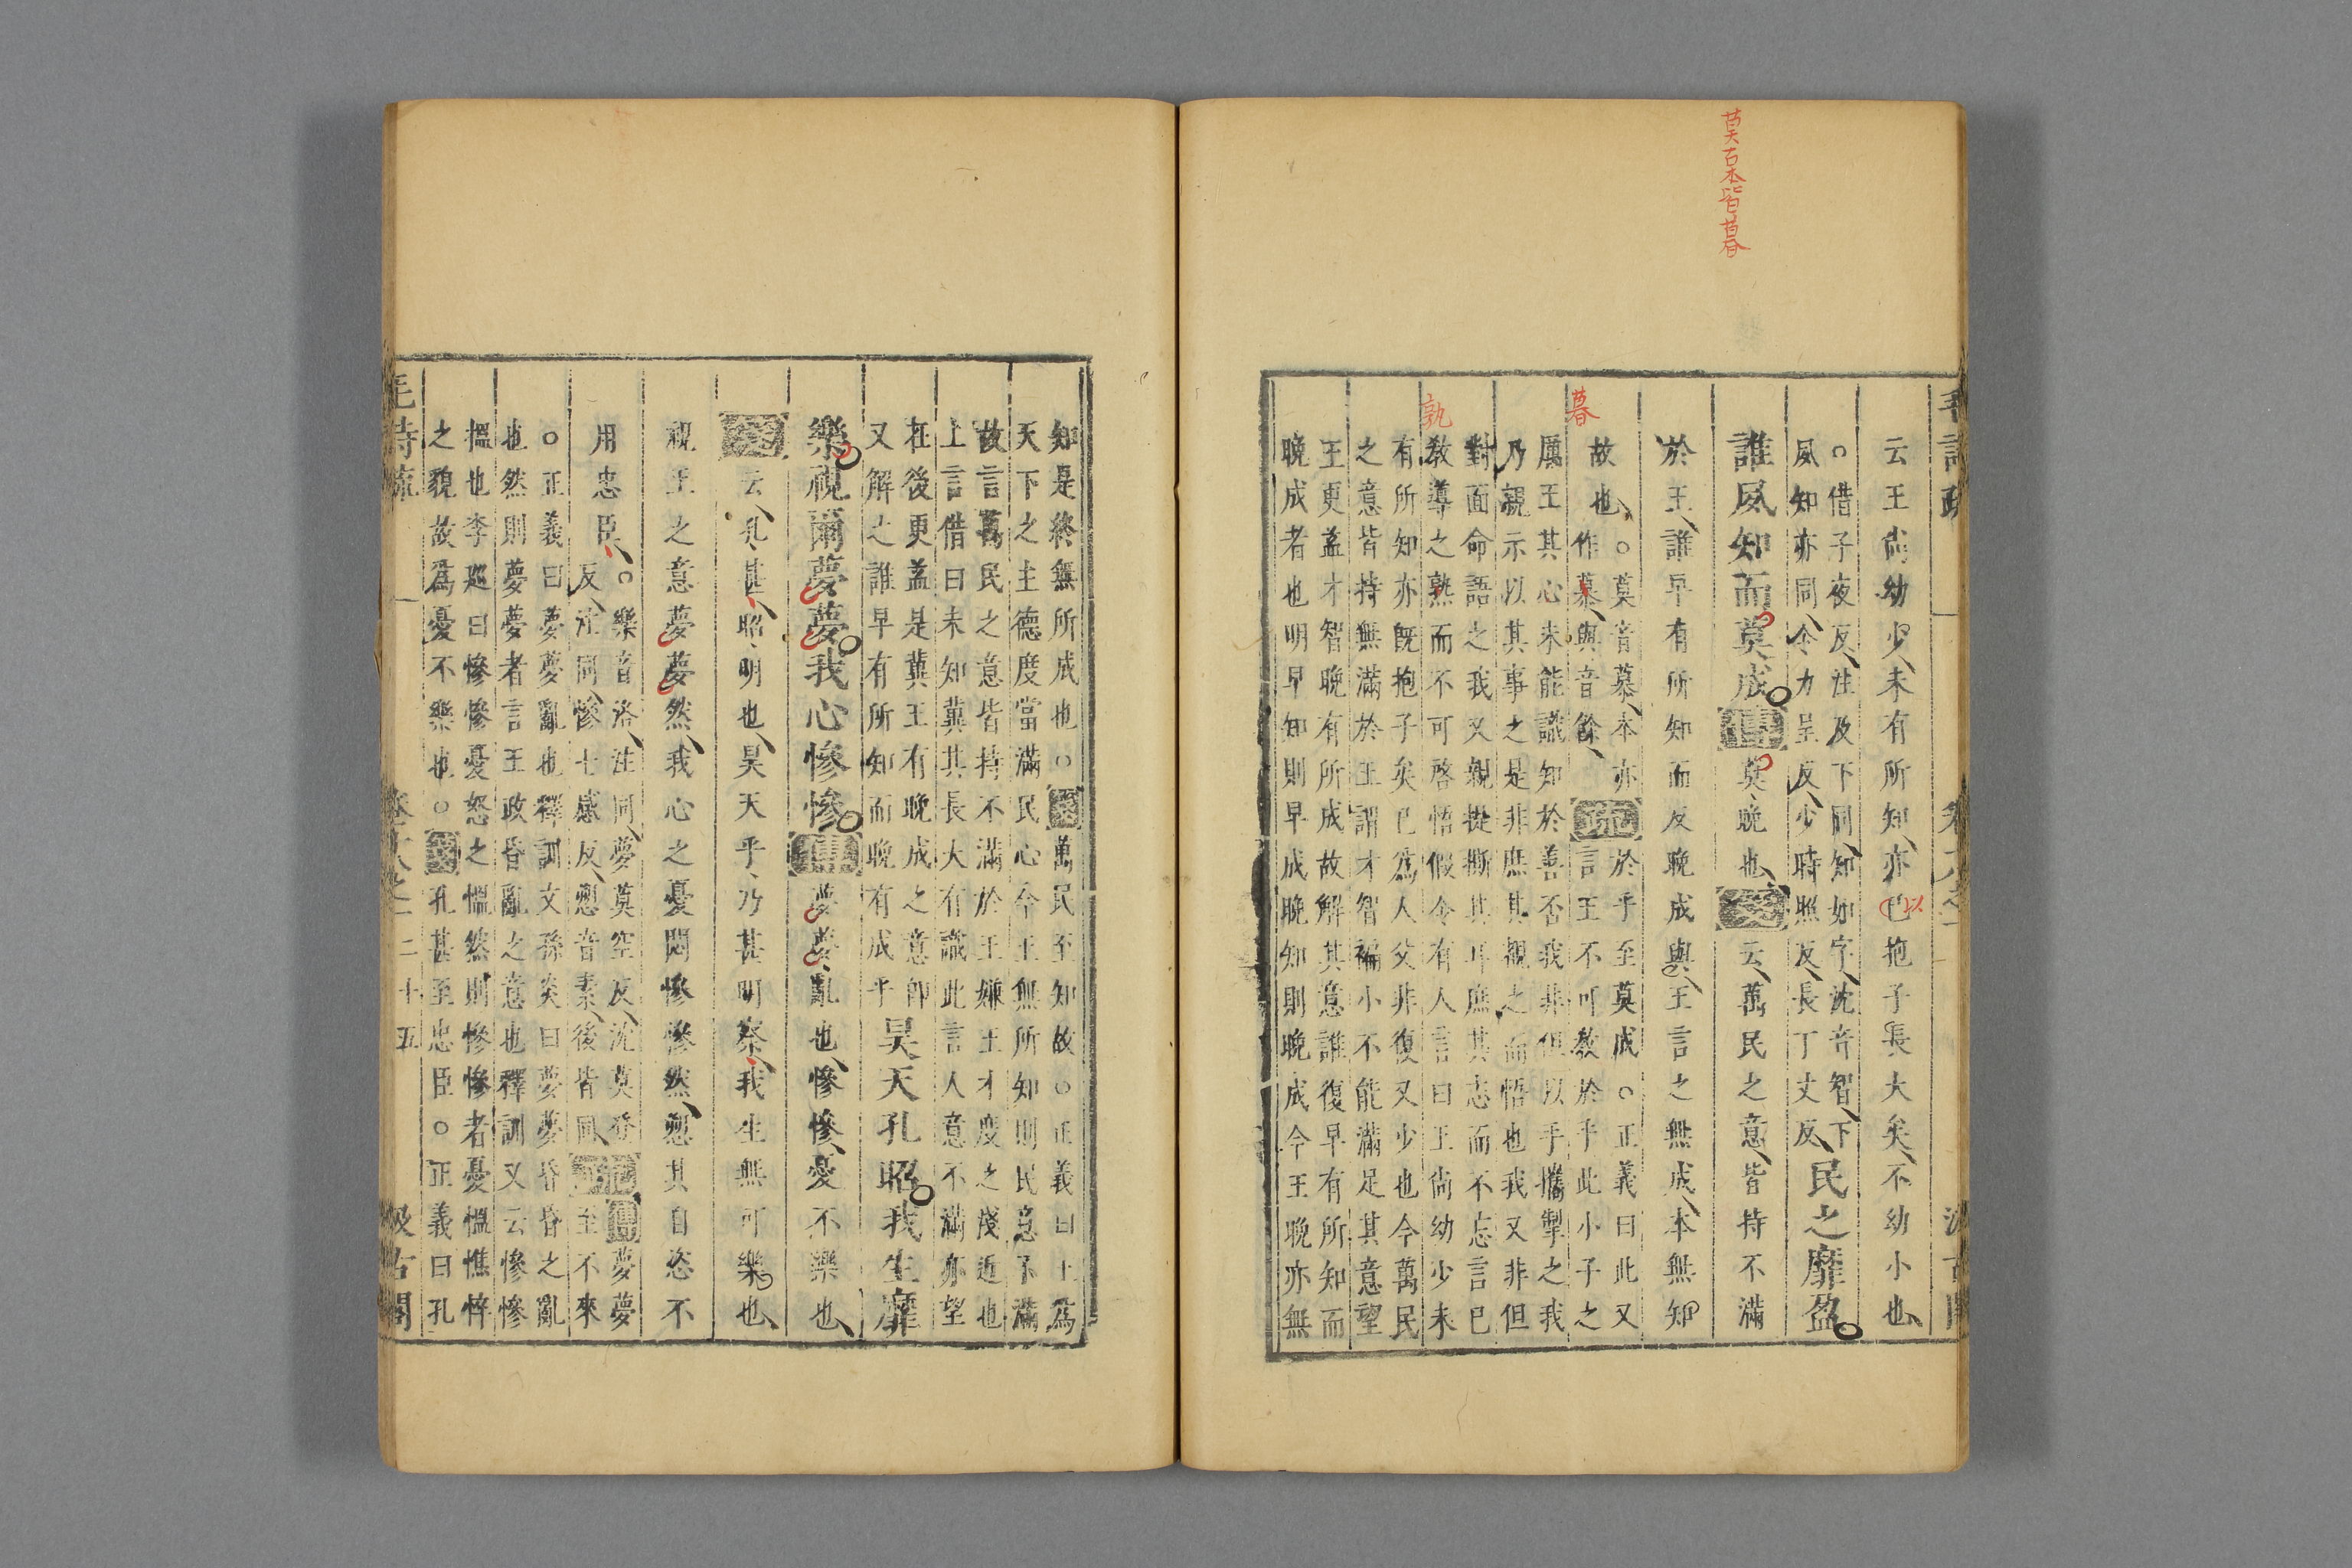 莫古本皆暮
云王尚幼少未有所知亦已抱子長大矣不幼小也
以
○借子夜反注及下同知如字沈音智下
夙知亦同令力呈反少時照反長丁丈反
民之靡盈
誰夙知而莫成傳莫晚也箋云萬民之意皆持不滿
於王誰早有所知而反晚成與王言之無成本無知
故也○莫音慕本亦
作慕與音餘
疏於乎至莫成○正義曰此又
言王不可敎於乎此小子之
暮
厲王其心未能識知於善否我非但以手攜掣之我
乃親示以其事之是非庶其覩之而悟也我又非但
對面命語之我又親提撕其耳庶其志而不忘言已
敎導之熟而不可啓悟假令有人言曰王尚幼少未
孰
有所知亦既抱子矣已爲人父非復又少也今萬民
之意皆持無滿於王謂才智褊小不能滿足其意望
王更益才智晚有所成故解其意誰復早有所知而
晚成者也明早知則早成晚知則晚成今王晚亦無
知是終無所成也○箋萬民至知故○正義曰王爲
天下之主德度當滿民心今王無所知則民意不滿
故言萬民之意皆持不滿於王嫌王才度之淺近也
上言借曰未知冀其長大有識此言人意不滿亦望
在後更益是冀王有晚成之意卽
又解之誰早有所知而晚有成乎
昊天孔昭我生靡
樂視爾夢夢我心慘慘傳夢夢亂也慘慘憂不樂也
箋云孔甚昭明也昊天乎乃甚明察我生無可樂也
視王之意夢夢然我心之憂悶慘慘然愬其自恣不
用忠臣○樂音洛注同夢莫空反沈莫登
反注同慘七感反愬音素後皆同
疏傳夢夢
至不來
○正義曰夢夢亂也釋訓文孫炎曰夢夢昏昏之亂
也然則夢夢者言王政昏亂之意也釋訓又云慘慘
慍也李巡曰慘慘憂怒之慍然則慘慘者憂慍憔悴
之貌故爲憂不樂也○箋孔甚至忠臣○正義曰孔
毛詩疏
卷十八之一
二十五
汲古閣